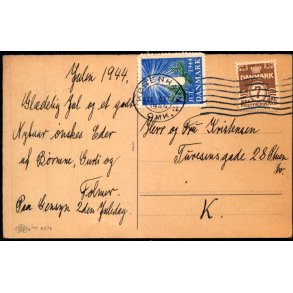 Julen 1944.
Glædelig Jul og et godt
Nytaar ønskes Eder
af Børnene, Curti og
Folmer.
Paa Gensyn 2den Juledag.
JUL 1944
DANMARK
KØBENHAVN
OMK.
DANMARK
7
Herr og Fru Kristensen
Turesensgade 28 Stuen
K.